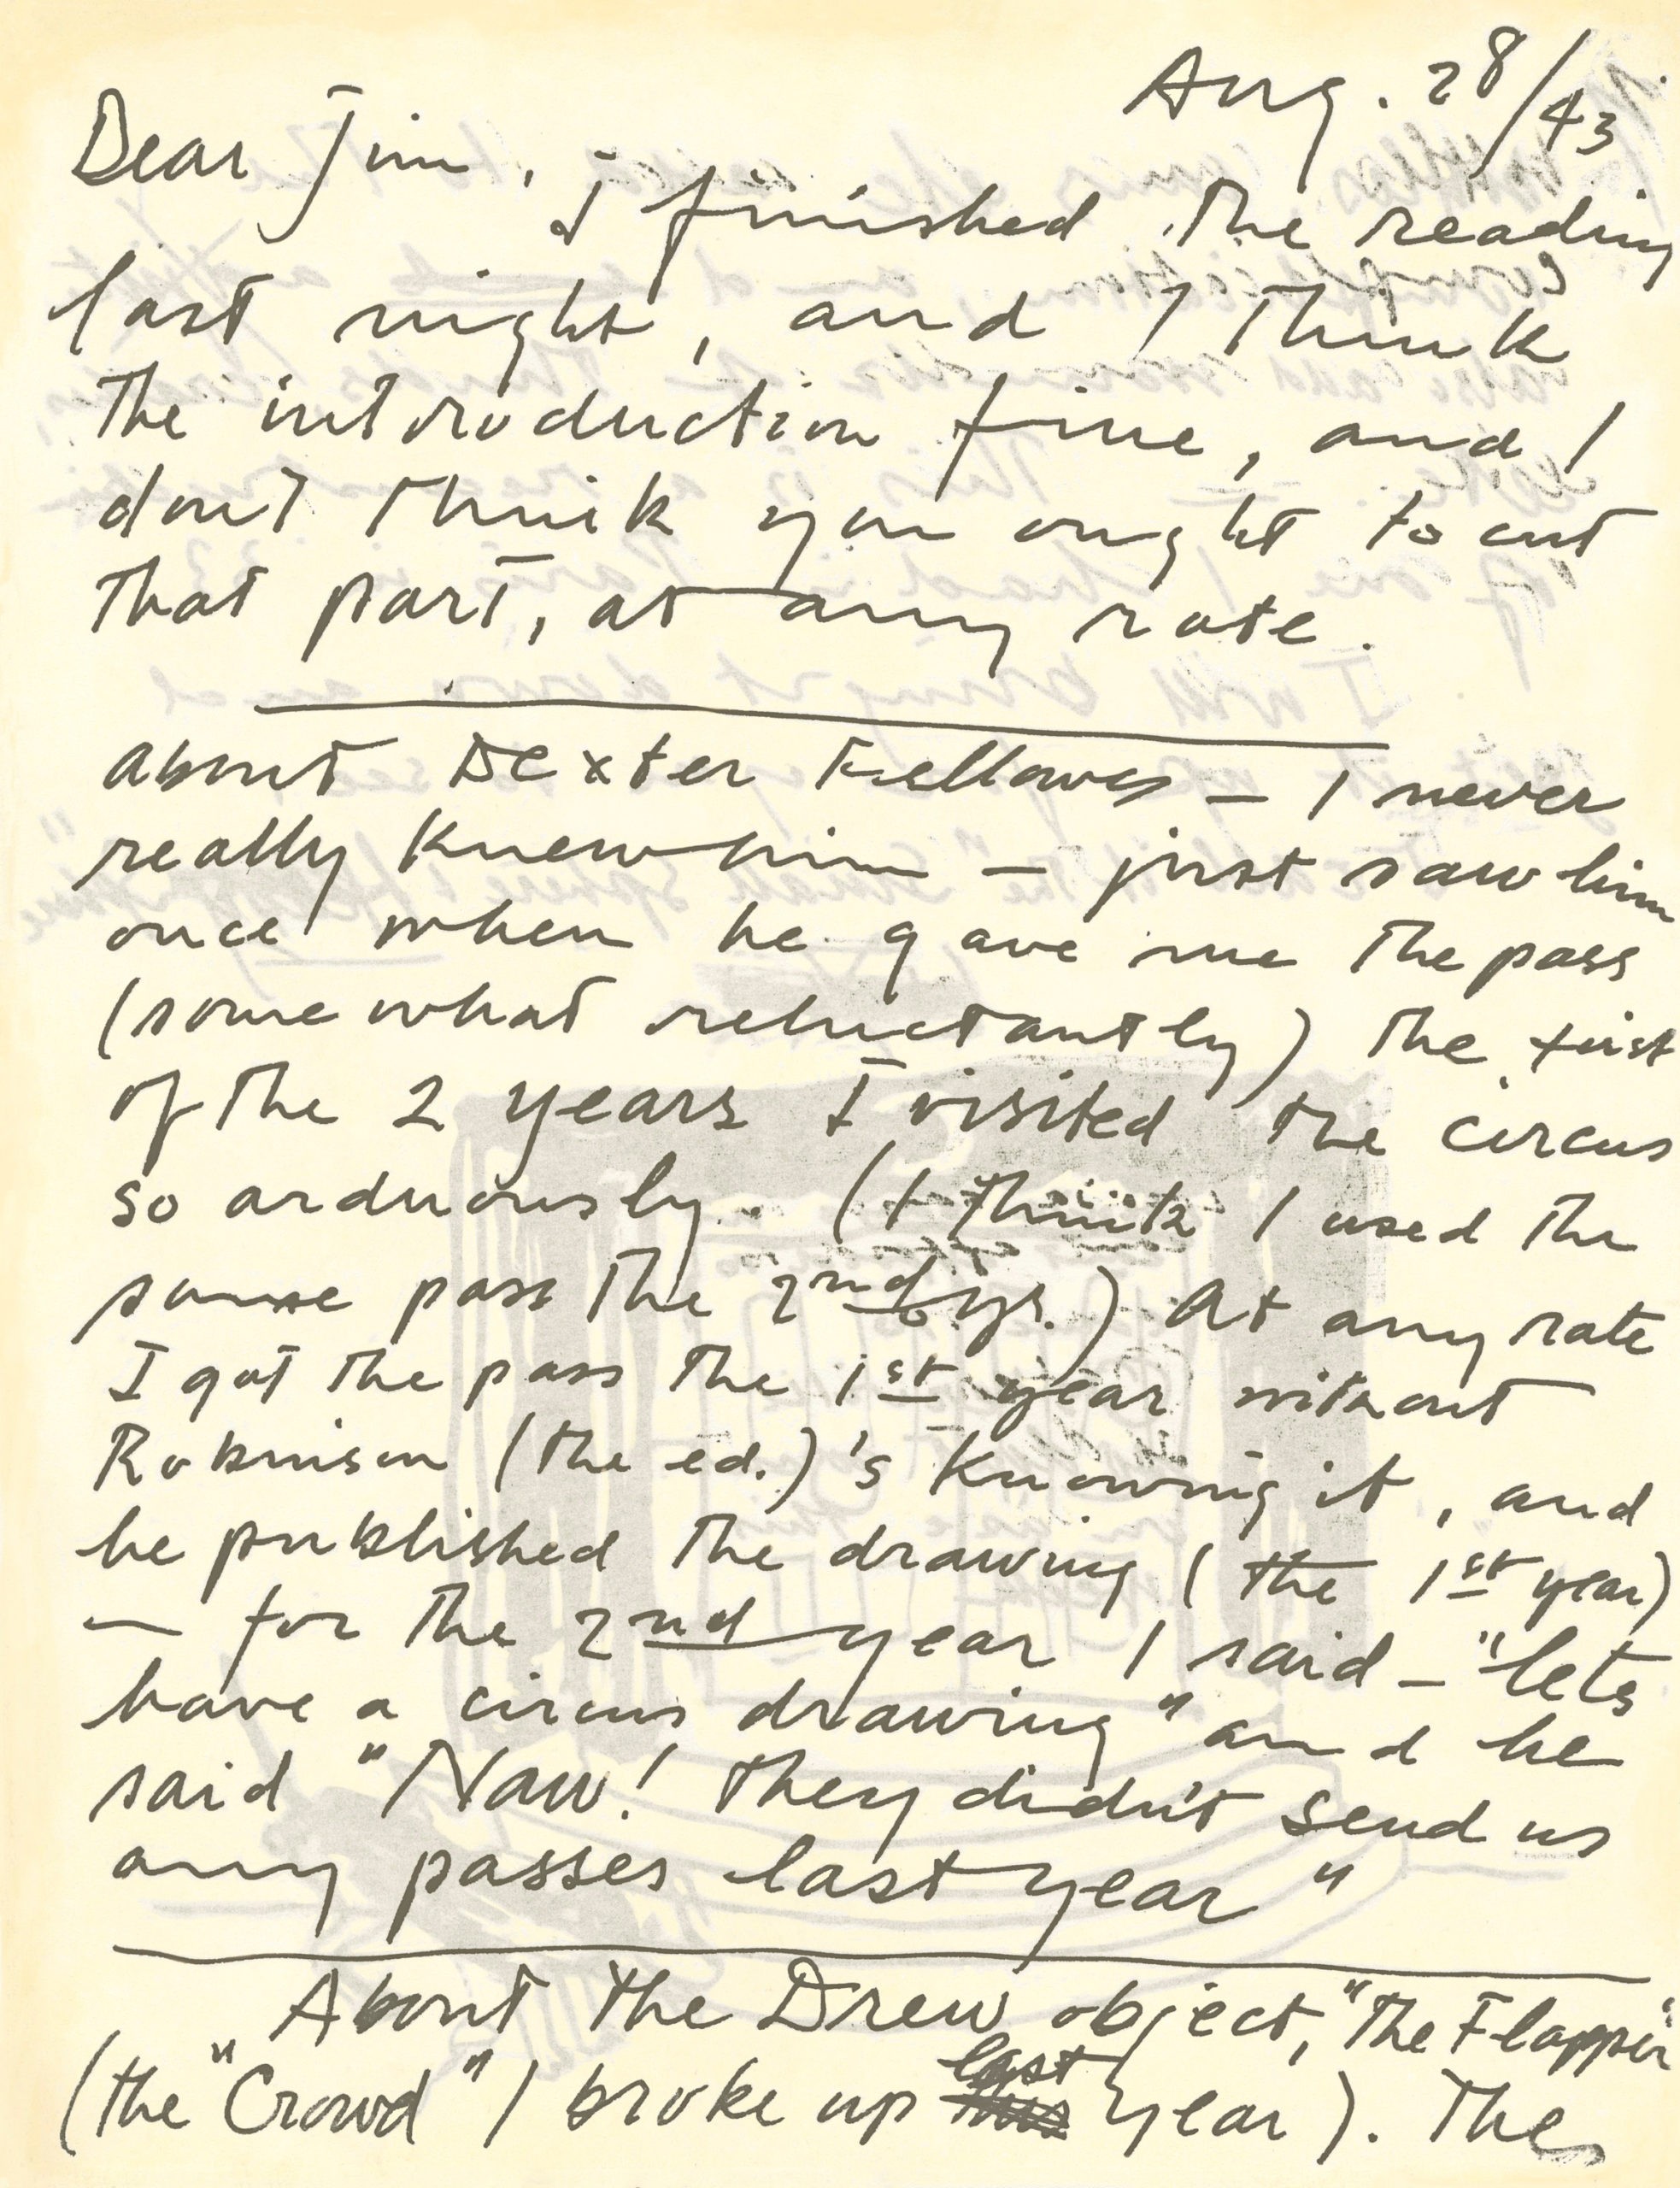 Aug. 28/43
Dear Jim, I finished the reading
last night, and I think
the introduction fine, and I
don't think you ought to cut
that part, at any rate.
about Dexter Fellows — I never
really knew him — just saw him
once when he gave me the pass
(somewhat reluctantly) the first
of the 2 years I visited the circus
so arduously. (I think I used the
same pass the 2nd yr.) At any rate
I got the pass the 1st year without
Robinson (the ed.)'s knowing it, and
he published the drawing (the 1st year)
— for the 2nd year I said — "lets
have a circus drawing" and he
said "Naw! They didn't send us
any passes last year"
About the Drew object, "The Flappin
(the "Crowd" I broke up last year). The